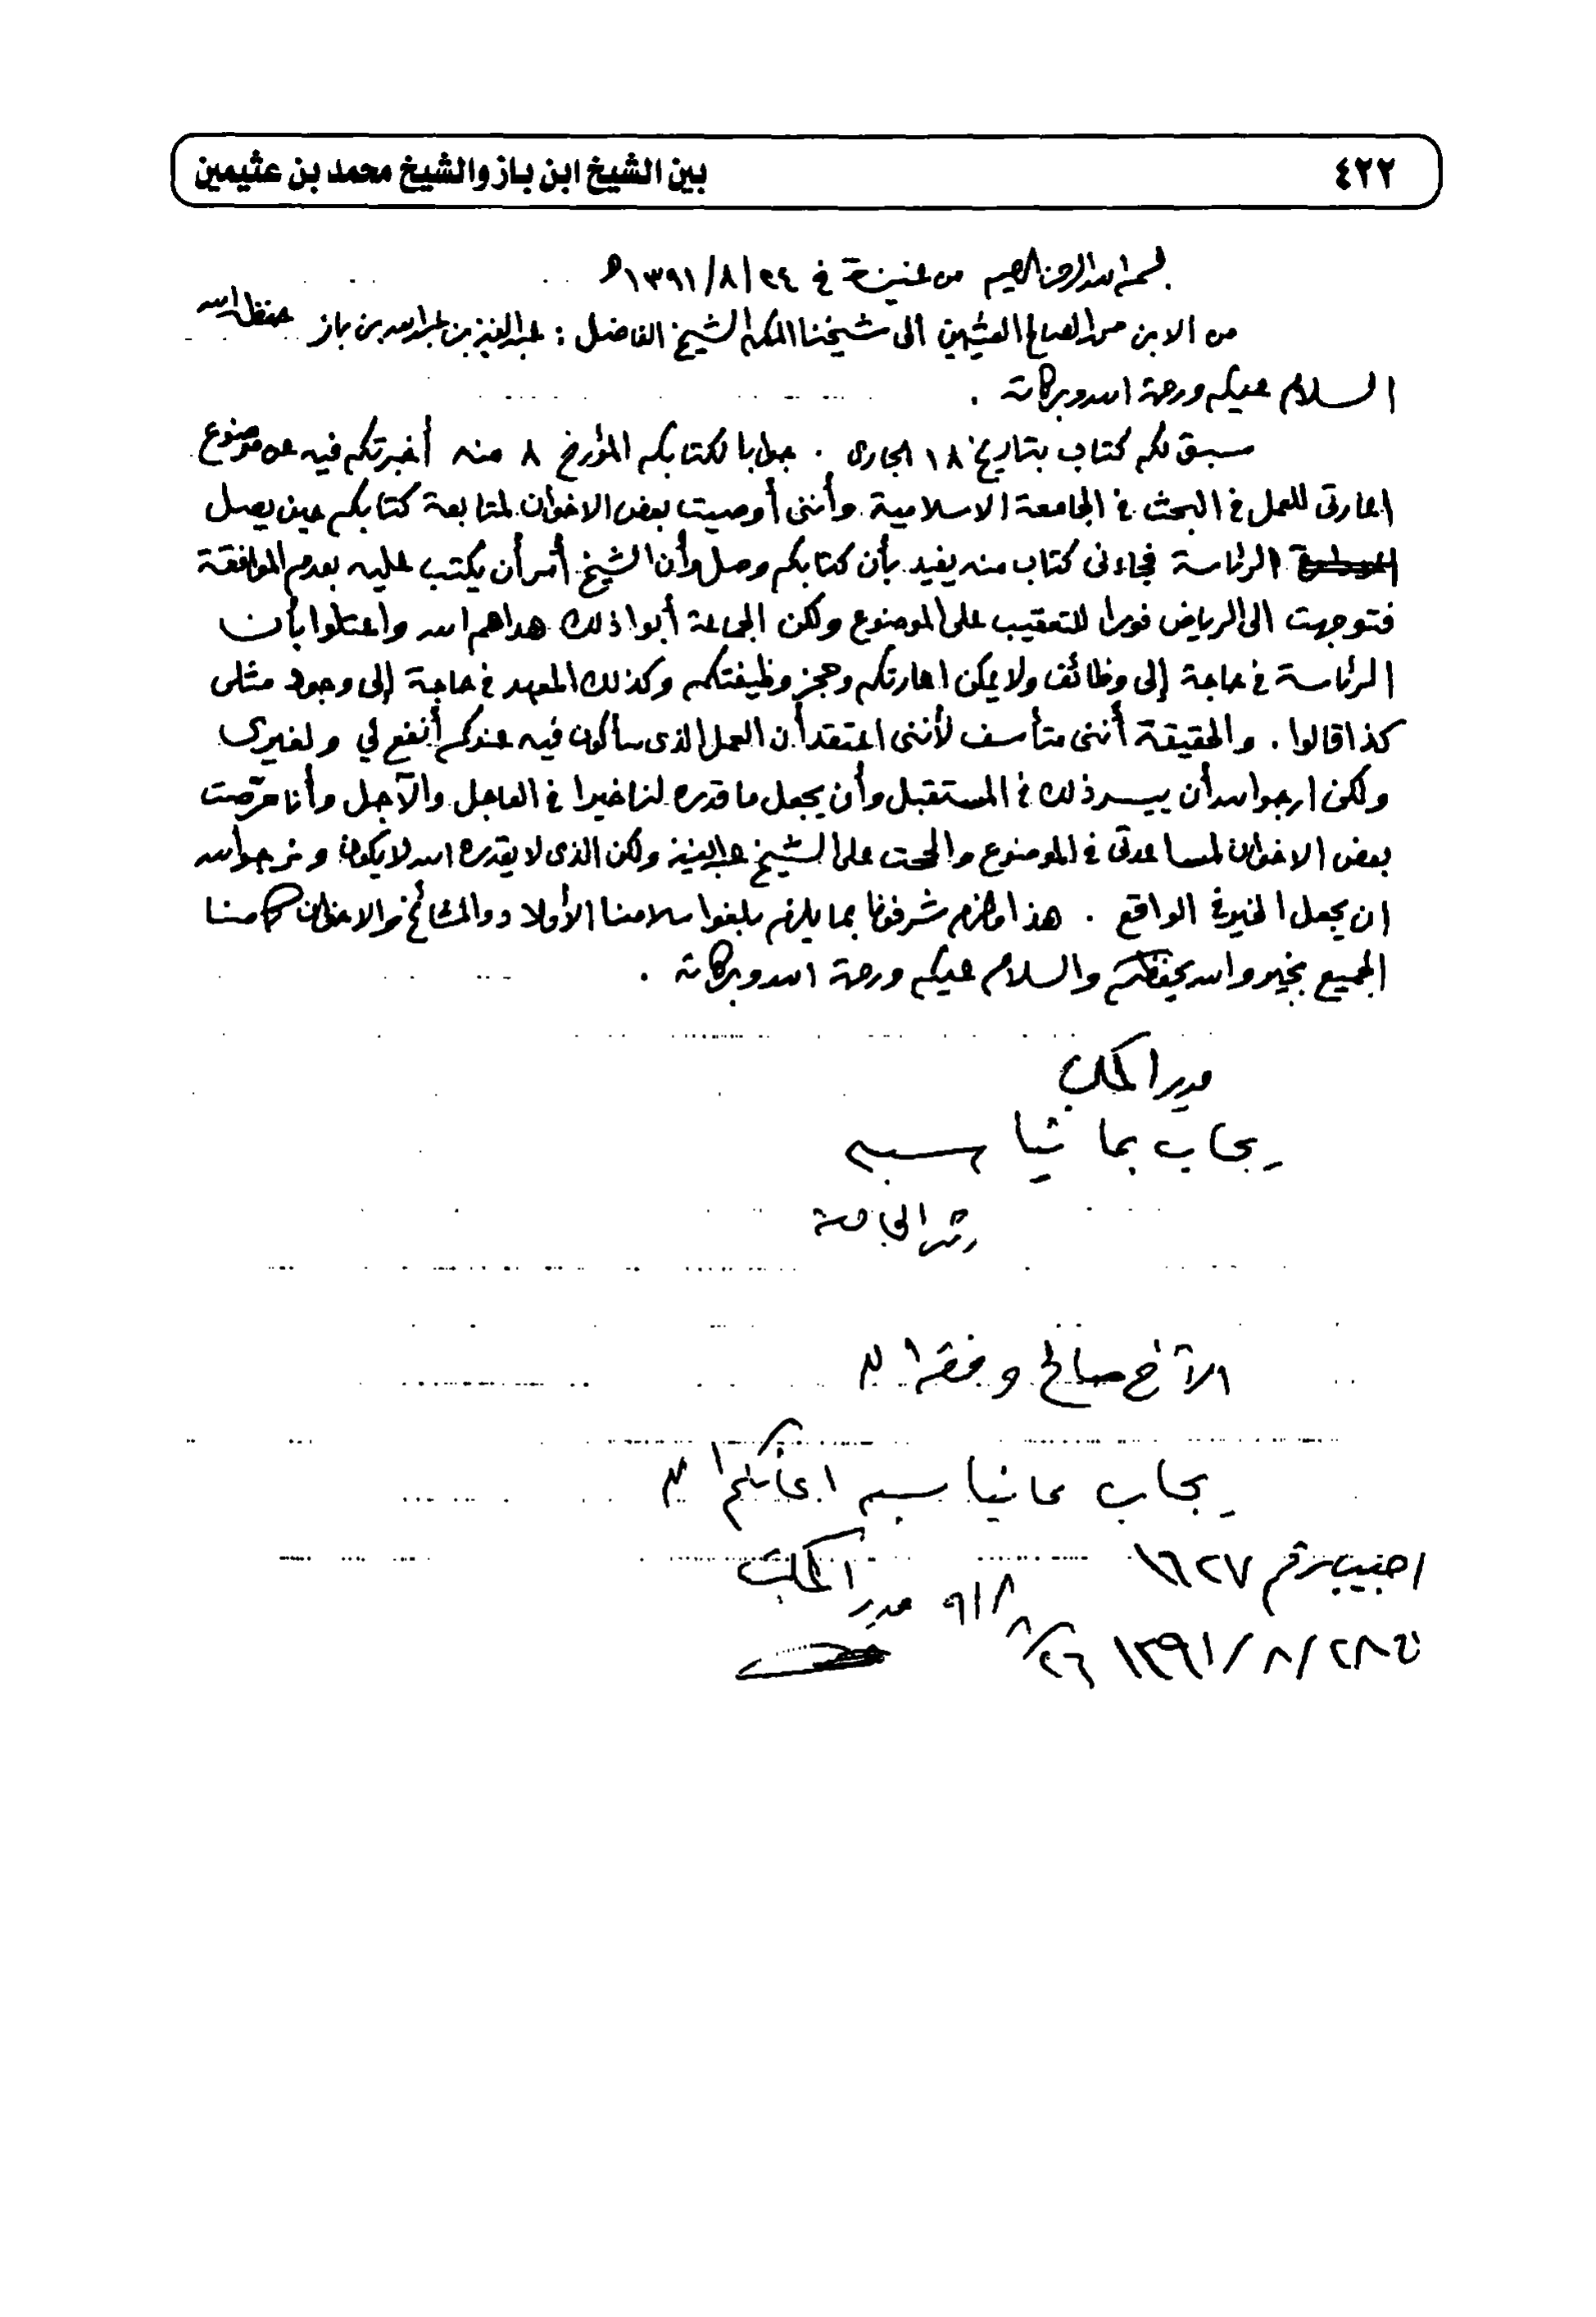 ٤٢٢
بين الشيخ ابن باز والشيخ محمد بن عثيمين
بسم الله الرحمن الرحيم من عنيزة في ٢٤/٨/١٣٩١هـ
من الابن محمد الصالح العثيمين الى شيخنا المكرم الشيخ الفاضل : عبدالعزيز بن عبدالله بن باز حفظه الله
السلام عليكم ورحمة الله وبركاته .
سبق لكم كتاب بتاريخ ١٨ الجاري . جوابا لكتابكم المؤرخ ٨ منه أخبرتكم فيه عن موضوع
اعارتي للعمل في البحث في الجامعة الاسلامية وأنني أوصيت بعض الاخوان لمتابعة كتابكم حين يصل
الرئاسة فجاءني كتاب منه يفيد بأن كتابكم وصل وأن الشيخ أمر أن يكتب عليه بعدم الموافقة
فتوجهت الى الرياض فورا للتعقيب على الموضوع ولكن الجماعة أبوا ذلك هداهم الله واعتلوا بأن
الرئاسة في حاجة إلى وظائف ولا يمكن اعارتكم وحجز وظيفتكم وكذلك المعهد في حاجة إلى وجود مثلى
كذا قالوا . والحقيقة أنني متأسف لأنني اعتقد أن العمل الذى سأكون فيه عندكم أنفع لي ولغيرى
ولكن ارجو الله أن ييسر ذلك في المستقبل وأن يجعل ما قدره لنا خيرا في العاجل والآجل وأنا حرّصت
بعض الاخوان لمساعدتي في الموضوع والحث على الشيخ عبدالعزيز ولكن الذى لا يقدره الله لا يكون ونرجو الله
ان يجعل الخير في الواقع . هذا ما لزم شرفونا بما يلزم بلغوا سلامنا الأولاد والمشائخ والاخوان كما منا
الجميع بخير والله يحفظكم والسلام عليكم ورحمة الله وبركاته .
مدير المكتب
يجاب بما يناسبه
رئيس الجامعة
الأخ صالح وفقه الله
يجاب بما يناسبه أعانكم الله
اجيب برقم ١٦٢٧
مدير المكتب
٢٦/٨
في ٢٨/٨/١٣٩١